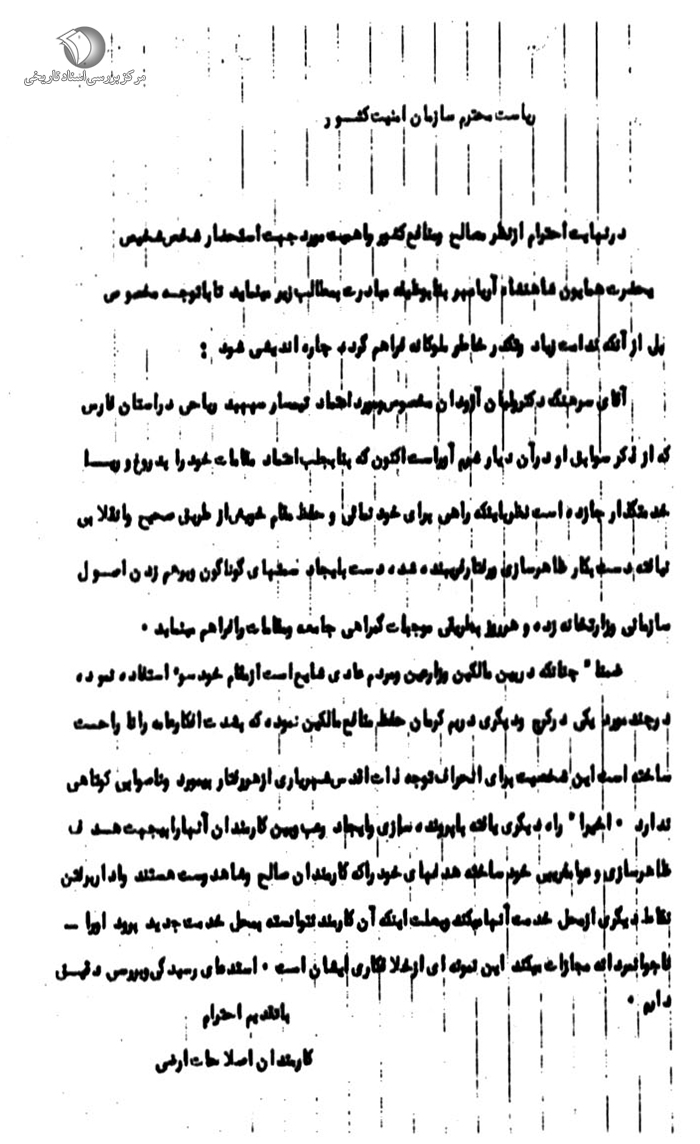 مرکز بررسی اسناد تاریخی
ریاست محترم سازمان امنیت کشور
در نهایت احترام از نظر مصالح و منافع کشور و اهمیت مورد جهت استحضار شخص شخیص
اعلیحضرت همایون شاهنشاه آریامهر بنا بوظیفه مبادرت بمطالب زیر مینماید تا با توجه مخصوص
قبل از آنکه ندامت زیاد و تکدر خاطر ملوکانه فراهم گردد چاره اندیشی شود :
آقای سرهنگ دکتر ولیان آزودان مخصوص و مورد اعتماد تیمسار سپهبد ریاحی در استان فارس
که از ذکر سوابق او در آن دیار شرم آور است اکنون که بنا بجلب اعتماد مقامات خود را بدروغ و ریا
خدمتگذار جا زده است نظر باینکه راهی برای خود نمائی و حفظ مقام خویش از طریق صحیح و انقلابی
نیافته دست بکار ظاهر سازی و رفتار فریبنده شده دست بایجاد گوناگون و برهم زدن اصول
سازمانی وزارتخانه زده و هر روز بطریقی موجبات گمراهی جامعه و مقامات را فراهم مینماید .
ضمنا" چنانکه در بین مالکین و زارعین و مردم عادی شایع است از مقام خود سوء استفاده نموده
در چند مورد یکی در کرج و دیگری در بم کرمان حفظ منافع مالکین نموده که بشدت افکار عامه را ناراحت
ساخته است این شخصیت برای انحراف توجه ذات اقدس شهریاری از هر رفتار بیمورد و ناصوابی کوتاهی
ندارد . اخیرا" راه دیگری یافته با پرونده سازی و ایجاد رعب و بین کارمندان آنها را بیجهت هدف
ظاهر سازی و عوامفریبی خود ساخته هدفهای خود را که کارمندان صالح و شاهدوست هستند وادار برفتن
نقاط دیگری از محل خدمت آنها میکند و بعلت اینکه آن کارمند نتوانسته بمحل خدمت جدید برود او را ـ
ناجوانمردانه مجازات میکند این نمونه ای از خلافکاری ایشان است . استدعای رسیدگی و بررسی دقیق
داریم .
با تقدیم احترام
کارمندان اصلاحات ارضی